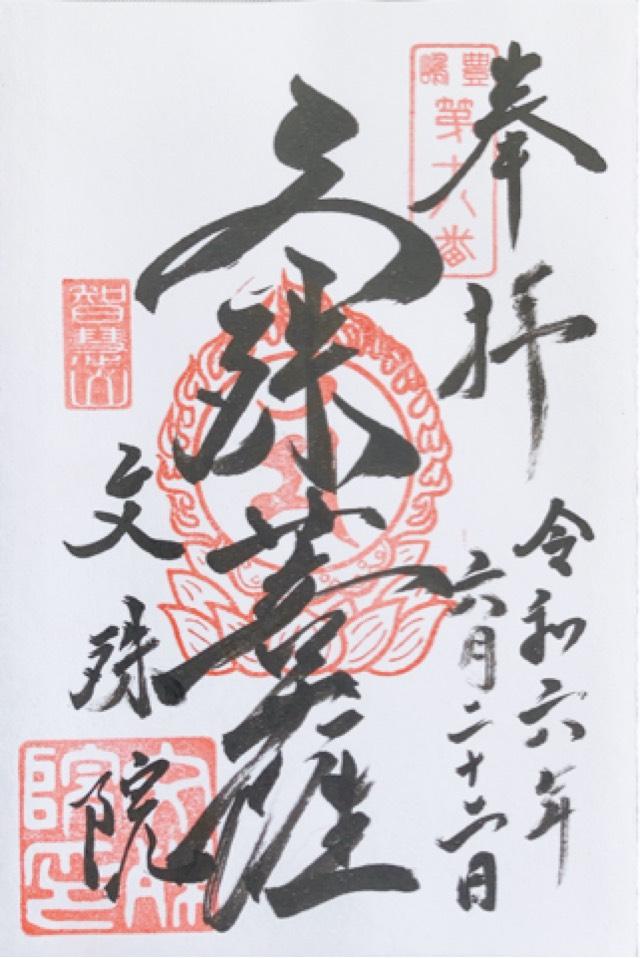 豊嶋
第十八番
奉拝
令和六年
六月二十二日
文殊菩薩
智慧
文殊院
文殊院印